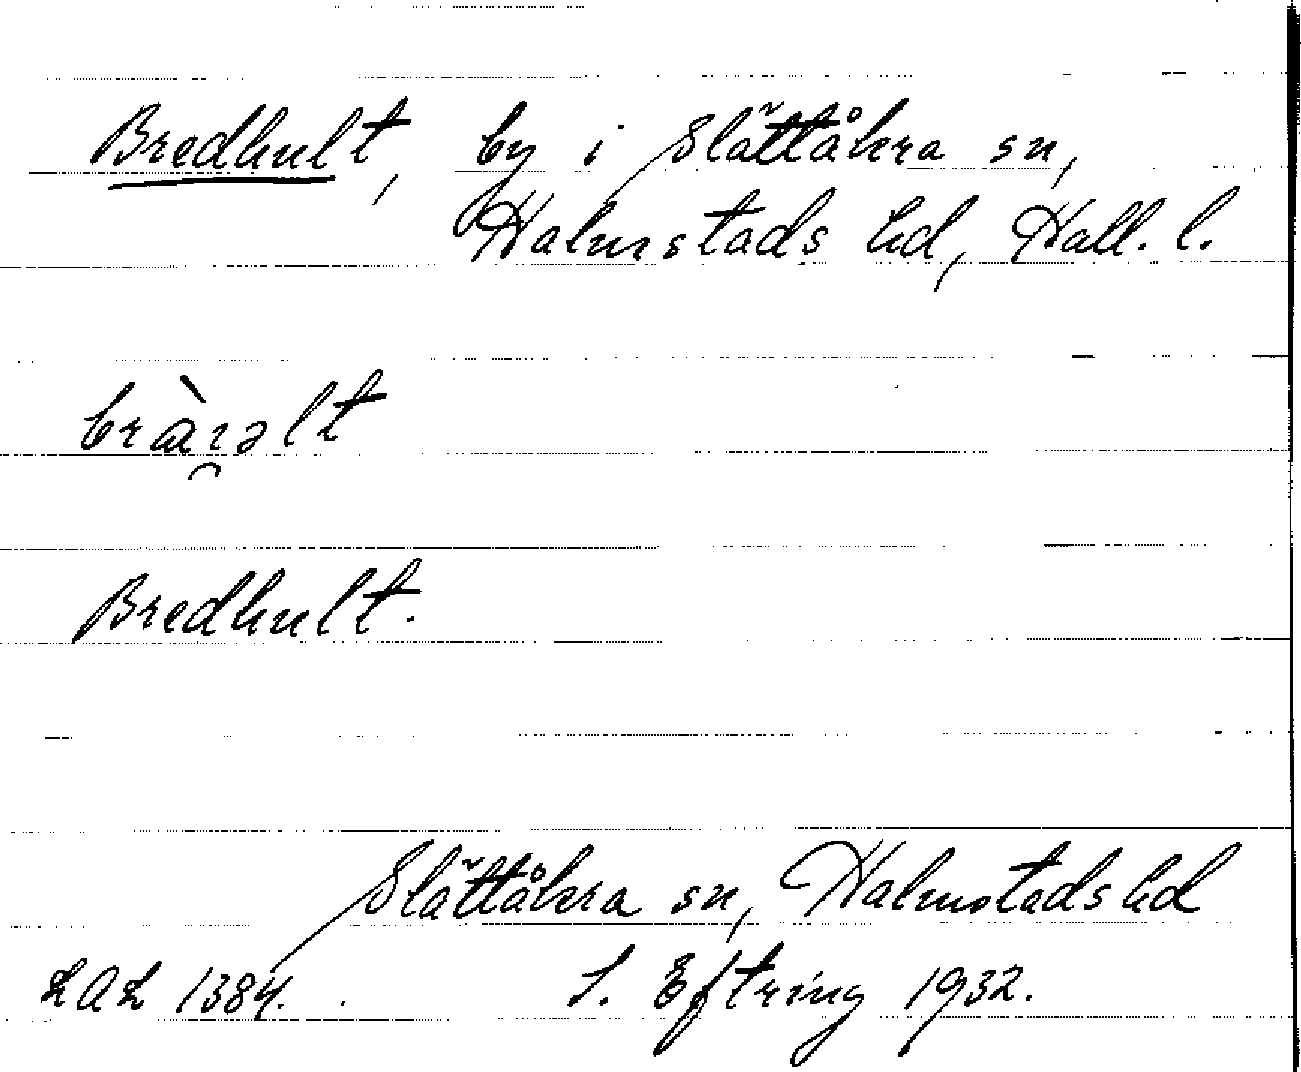 Bredhult, by i Slättåkra sn,
Halmstads hd, Hall. l.
bràɿəlt
Bredhult.
Slättåkra sn, Halmstads hd
LAL 1384. S. Eftring 1932.